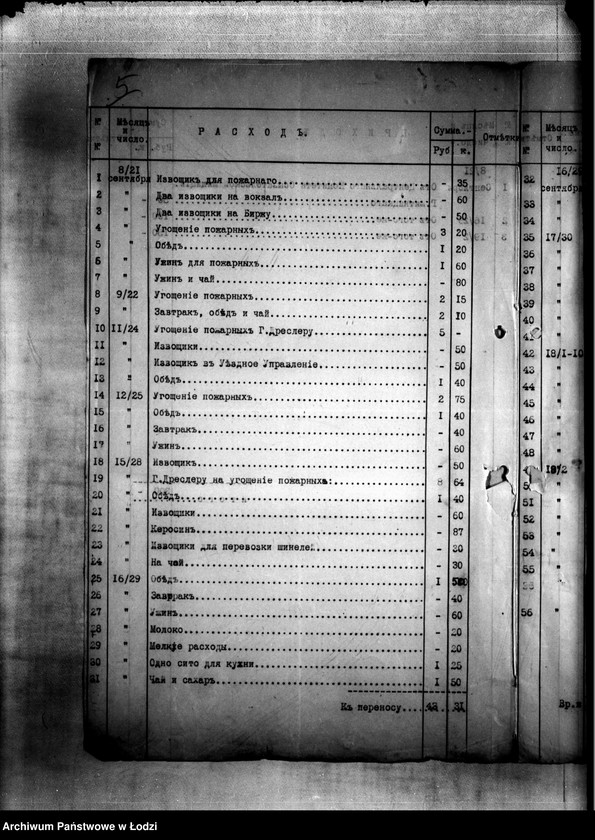 5
№ № Мѣсяцъ и число. РАСХОДЪ. Сумма. Руб к. Отмѣтки
1 8/21 сентября Извощикъ для пожарнаго - 35
2 " Два извощики на вокзалъ - 60
3 " Два извощики на Биржу - 50
4 " Угощеніе пожарныхъ 3 20
5 " Обѣдъ I 20
6 " Ужинъ для пожарныхъ I 60
7 " Ужинъ и чай - 80
8 9/22 Угощеніе пожарныхъ 2 15
9 " Завтракъ, обѣдъ и чай 2 10
10 11/24 Угощеніе пожарныхъ Г.Дреслеру 5 -
11 " Извощики - 50
12 " Извощикъ въ Уѣздное Управленіе - 50
13 " Обѣдъ I 40
14 12/25 Угощеніе пожарныхъ 2 75
15 " Обѣдъ I 40
16 " Завтракъ - 40
17 " Ужинъ - 60
18 15/28 Извощикъ - 50
19 " Г.Дреслеру на угощеніе пожарныхъ: 8 64
20 " Обѣдъ I 40
21 " Извощики - 60
22 " Керосинъ - 87
23 " Извощики для перевозки шинелей - 30
24 " На чай - 30
25 16/29 Обѣдъ I
26 " Завтракъ - 40
27 " Ужинъ - 60
28 " Молоко - 20
29 " Мелкіе расходы - 20
30 " Одно сито для кухни I 25
31 " Чай и сахаръ I 50
Къ переносу 43 31
№ № Мѣсяцъ и число.
32 сентября
33 "
34 "
35 17/30
36 "
37 "
38 "
39 "
40 "
41 "
42 18/1-10
43 "
44 "
45 "
46 "
47 "
48 "
51 "
52 "
53 "
54 "
55 "
56 "
Archiwum Państwowe w Łodzi